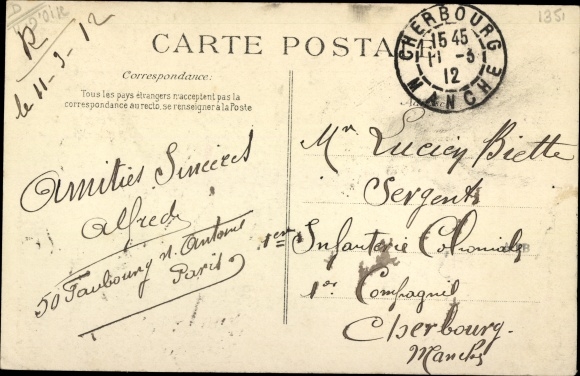 R
le 11-3-12
1351
CARTE POSTA
CHERBOURG
15 45
11 -3
12
MANCHE
Correspondance:
Tous les pays étrangers n'acceptent pas la
correspondance au recto, se renseigner à la Poste
Amitiés Sincères
Alfred
50 Faubourg st. Antoine
Paris
Mr Lucien Biette
Sergent
1er Infanterie Coloniale
1er Compagnie
Cherbourg.
Manche